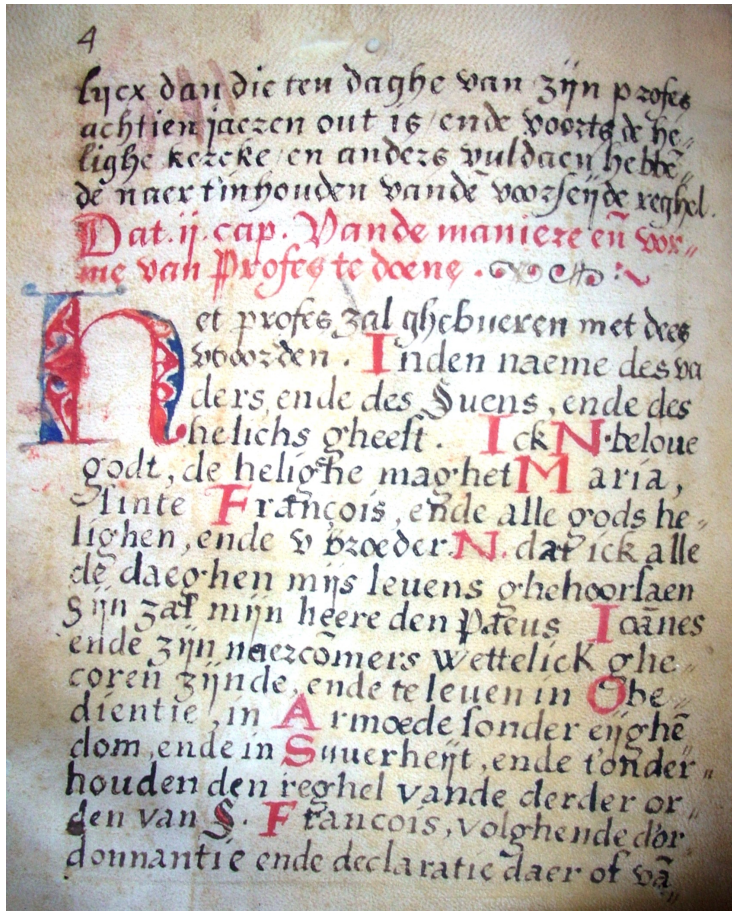 4
lijcx dan die ten daghe van zijn profes
achtien jaeren out is / ende voorts de he„
lighe kercke / en anders vuldaen hebbē„
de naer t'inhouden vandē voorseijde reghel.
Dat .ij. cap. Vande maniere eñ vor„
me van Profes te doene.
Het profes zal ghebueren met dees
woorden. Inden naeme des va
ders, ende des Suens, ende des
helichs gheest. Ick N. beloue
godt, de helighe maghet Maria,
Sinte François, ende alle gods he„
lighen, ende v broeder. N. dat ick alle
dē daeghen mijs leuens ghehoorsaen
Sijn zal mijn heere den Paeus Ioānes
ende zijn naercōmers wettelick ghe„
coren zijnde, ende te leuen in Obe„
dientie, in Armoede sonder eijghē
dom, ende in Suuerheijt, ende t'onder„
houden den reghel vande derder or„
den van S. Francois, volghende d'or„
donnantie ende declaratie daer of vā„